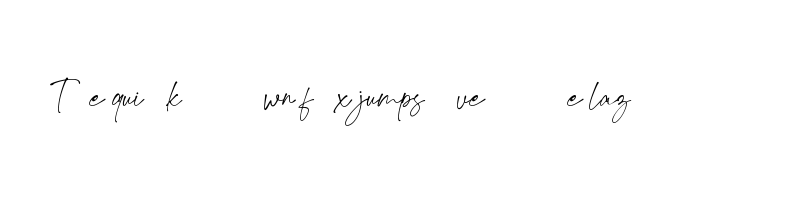 T equi k wnf xjumps ve elaz